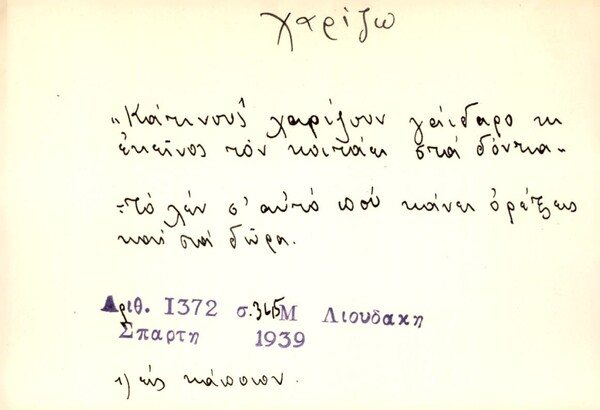 χαρίζω
"Κάτινους¹ χαρίζουν γάιδαρο κι
ἐκεῖνος τὸν κοιτάει στὰ δόντια"
-τὸ λὲν σ' αὐτὸ ποὺ κάνει ὀρέξεις
καὶ στὰ δῶρα.
Αριθ. 1372 σ.365 Μ Λιουδακη
Σπαρτη 1939
1) εἰς κάποιον.